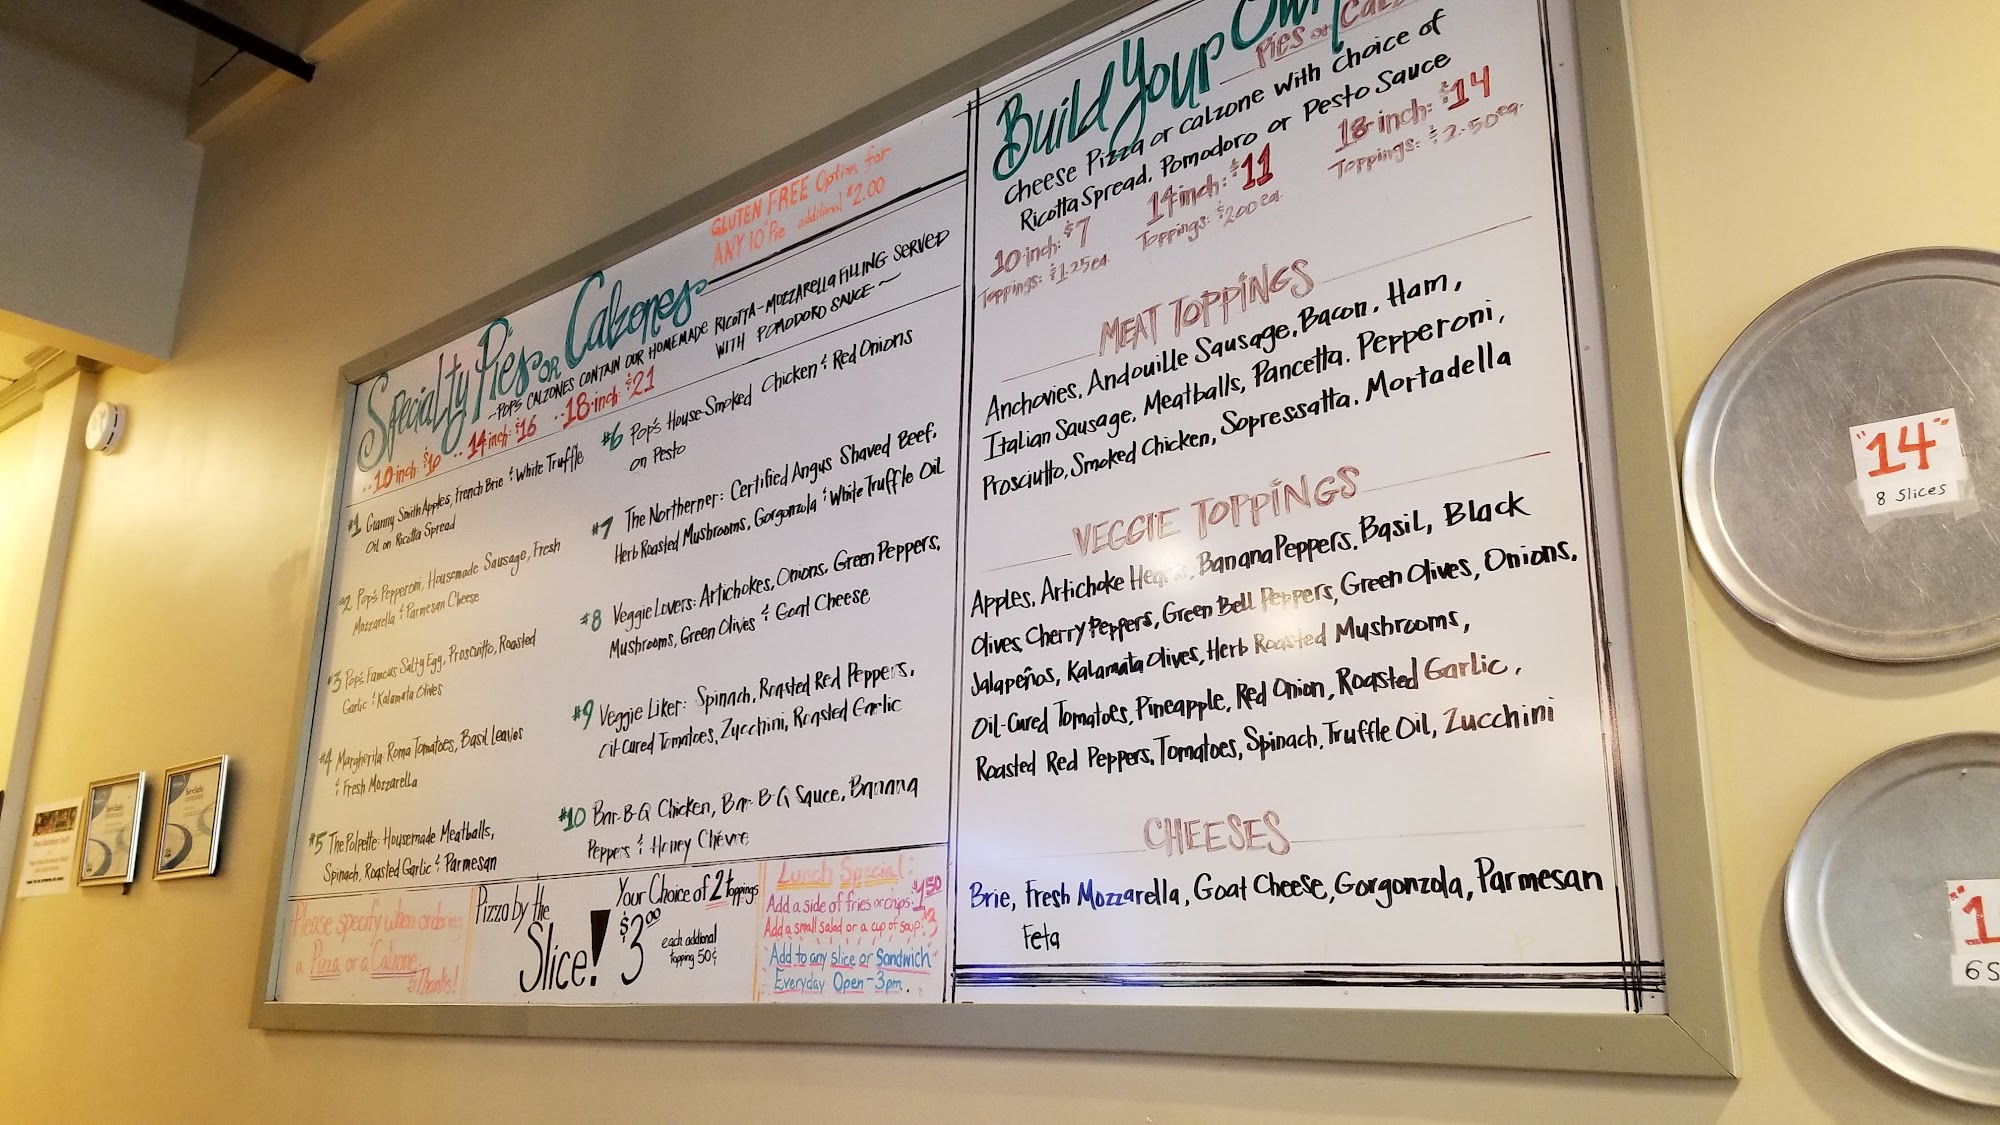 Specialty Pies or Calzones
~POP'S CALZONES CONTAIN OUR HOMEMADE RICOTTA-MOZZARELLA FILLING SERVED
WITH POMODORO SAUCE~
GLUTEN FREE Option for
ANY 10" Pie additional $2.00
..10-inch: $10 .. 14 inch: $16 ..18-inch: $21
#1 Granny Smith Apples, French Brie & White Truffle
Oil on Ricotta Spread
#2 Pop's Pepperoni, Housemade Sausage, Fresh
Mozzarella & Parmesan Cheese
#3 Pop's Famous Salty Egg, Proscuitto, Roasted
Garlic & Kalamata Olives
#4 Margherita: Roma Tomatoes, Basil Leaves
& Fresh Mozzarella
#5 The Polpette: Housemade Meatballs,
Spinach, Roasted Garlic & Parmesan
#6 Pop's House-Smoked Chicken & Red Onions
on Pesto
#7 The Northerner: Certified Angus Shaved Beef,
Herb Roasted Mushrooms, Gorgonzola & White Truffle Oil
#8 Veggie Lovers: Artichokes, Onions, Green Peppers,
Mushrooms, Green Olives & Goat Cheese
#9 Veggie Liker: Spinach, Roasted Red Peppers,
Oil-Cured Tomatoes, Zucchini, Roasted Garlic
#10 Bar-B-Q Chicken, Bar-B-Q Sauce, Banana
Peppers & Honey Chèvre
Please specify when ordering
a Pizza or a Calzone.
Thanks!
Pizza by the
Slice!
Your Choice of 2 toppings
$3.00
each additional
topping 50¢
Lunch Special:
Add a side of fries or chips: $1.50
Add a small salad or a cup of soup: $3
Add to any slice or Sandwich
Everyday Open - 3pm.
Build Your Own
Pies or
Cheese Pizza or Calzone with Choice of
Ricotta Spread, Pomodoro or Pesto Sauce
10-inch: $7
Toppings: $1.25 ea.
14 inch: $11
Toppings: $2.00 ea.
18-inch: $14
Toppings: $2.50 ea.
MEAT TOPPINGS
Anchovies, Andouille Sausage, Bacon, Ham,
Italian Sausage, Meatballs, Pancetta, Pepperoni,
Prosciutto, Smoked Chicken, Sopressatta, Mortadella
VEGGIE TOPPINGS
Apples, Artichoke Hearts, Banana Peppers, Basil, Black
Olives, Cherry Peppers, Green Bell Peppers, Green Olives, Onions,
Jalapeños, Kalamata Olives, Herb Roasted Mushrooms,
Oil-Cured Tomatoes, Pineapple, Red Onion, Roasted Garlic,
Roasted Red Peppers, Tomatoes, Spinach, Truffle Oil, Zucchini
CHEESES
Brie, Fresh Mozzarella, Goat Cheese, Gorgonzola, Parmesan
Feta
"14"
8 Slices